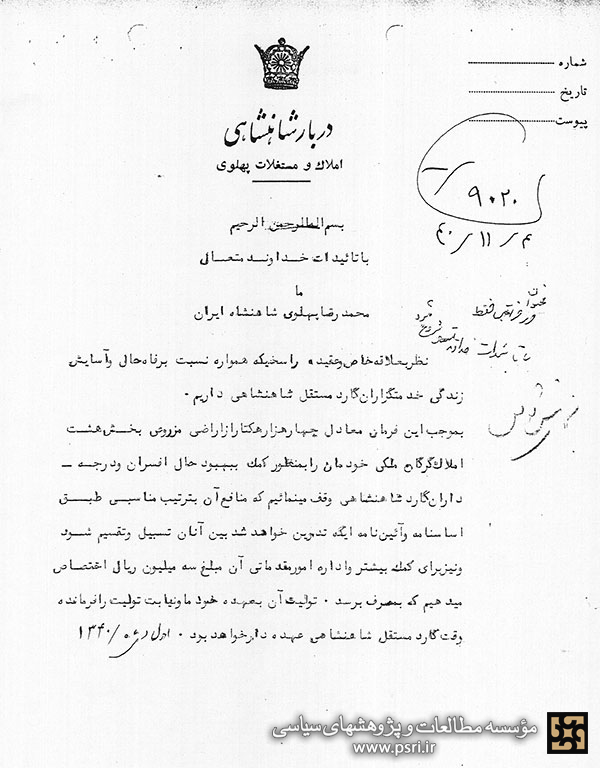 شماره
تاریخ
پیوست
دربار شاهنشاهی
املاک و مستغلات پهلوی
۹۰۲۰
۴۰/۱۱/
بسم الله الرحمن الرحیم
با تائیدات خداوند متعالی
ما
محمدرضا پهلوی شاهنشاه ایران
فقط
نظر بعلاقه خاص و عقیده راسخیکه همواره نسبت برفاه حال و آسایش
زندگی خدمتگزاران گارد مستقل شاهنشاهی داریم .
بموجب این فرمان معادل چهار هزار هکتار از اراضی مزروعی بخش هشت
املاک گرگان ملکی خودمان را بمنظور کمک ببهبود حال افسران و درجه –
داران گارد شاهنشاهی وقف مینمائیم که منافع آن بترتیب مناسبی طبق
اساسنامه و آئین نامه ایکه تدوین خواهد شد بین آنان تسبیل و تقسیم شود
و نیز برای کمک بیشتر و اداره امور مقدماتی آن مبلغ سه میلیون ریال اختصاص
میدهیم که بمصرف برسد . تولیت آن بعهده خود ما و نیابت تولیت را فرمانده
وقت گارد مستقل شاهنشاهی عهده دار خواهد بود . اول دی ۱۳۴۰
مؤسسه مطالعات و پژوهشهای سیاسی
www.psri.ir